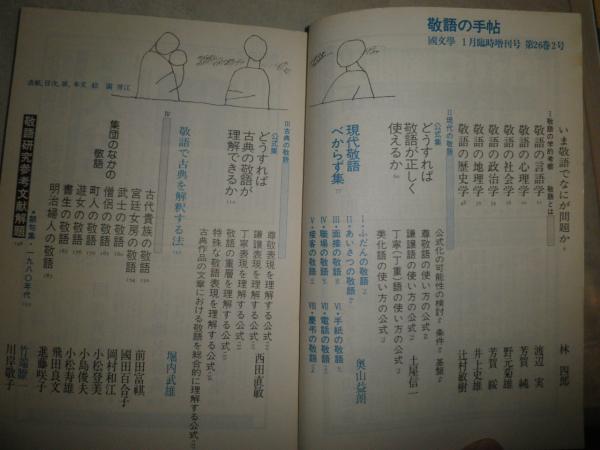 敬語の手帖
國文學 1月臨時増刊号 第26巻2号
いま敬語でなにが問題か
林 四郎
I 敬語の学的考察 敬語とは
敬語の言語学
渡辺 実
敬語の心理学
芳賀 純
敬語の社会学
野元菊雄
敬語の政治学
芳賀 綏
敬語の地理学
井上史雄
敬語の歴史学
辻村敏樹
II 現代の敬語
公式集
どうすれば
敬語が正しく
使えるか
公式化の可能性の検討 条件 基盤
尊敬語の使い方の公式
謙譲語の使い方の公式
丁寧(丁重)語の使い方の公式
美化語の使い方の公式
土屋信一
現代敬語
べからず集
I・ふだんの敬語
II・あいさつの敬語
III・面接の敬語
IV・職場の敬語
V・接客の敬語
VI・手紙の敬語
VII・電話の敬語
VIII・慶弔の敬語
奥山益朗
III 古典の敬語
公式集
どうすれば
古典の敬語が
理解できるか
尊敬表現を理解する公式
謙譲表現を理解する公式
丁寧表現を理解する公式
敬語の重層を理解する公式
特殊な敬語表現を理解する公式
古典作品の文章における敬語を総合的に理解する公式
西田直敏
IV
敬語で古典を解釈する法
堀内武雄
集団のなかの
敬語
古代貴族の敬語
前田富祺
宮廷女房の敬語
國田百合子
武士の敬語
岡村和江
僧侶の敬語
小松登美
町人の敬語
小島俊夫
遊女の敬語
小松寿雄
書生の敬語
飛田良文
明治婦人の敬語
進藤咲子
敬語研究参考文献解題
竹端瞭一
川岸敬子
表紙、目次、扉、本文 絵 園 啓江